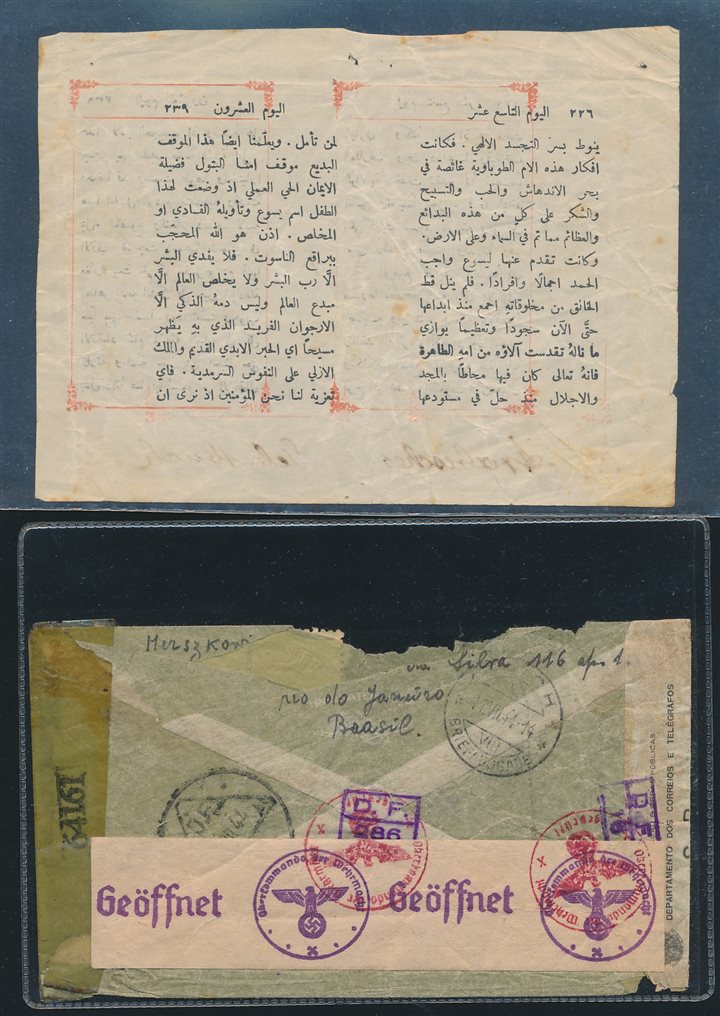 ٢٢٦ اليوم التاسع عشر
ينوط بسر التجسد الالهي . فكانت
افكار هذه الام الطوباوية غائصة في
بحر الاندهاش والحب والتسبيح
والشكر على كل من هذه البدائع
والعظائم مما تم في السماء وعلى الارض.
وكانت تقدم عنها ليسوع واجب
الحمد اجمالًا وافرادًا . فلم ينل قط
الخالق من مخلوقاته اجمع منذ ابداعها
حتَّى الآن سجودًا وتعظيمًا يوازي
ما نالهُ تقدست آلاؤه من امهِ الطاهرة
فانهُ تعالى كان فيها محاطًا بالمجد
والاجلال منذ حلّ في مستودعها
اليوم العشرون ٢٣٩
لمن تأمل . ويعلّمنا ايضًا هذا الموقف
البديع موقف امنا البتول فضيلة
الايمان الحي العملي اذ وضعت لهذا
الطفل اسم يسوع وتأويلهُ الفادي او
المخلص . اذن هو الله المحتجب
ببراقع الناسوت . فلا يفدي البشر
الَّا رب البشر ولا يخلص العالم الَّا
مبدع العالم وليس دمهُ الذكي الَّا
الارجوان الفريد الذي بهِ يَظهر
مسيحًا اي الحبر الابدي القديم والملك
الازلي على النفوس السرمدية . فاي
تعزية لنا نحن المؤمنين اذ نرى ان
Silva 116 ap. 1.
rio do Janeiro
Brasil.
D. F.
986
D. F.
DEPARTAMENTO DOS CORREIOS E TELÉGRAFOS
PÚBLICAS
Geöffnet
Oberkommando der Wehrmacht
Geöffnet
Oberkommando der Wehrmacht